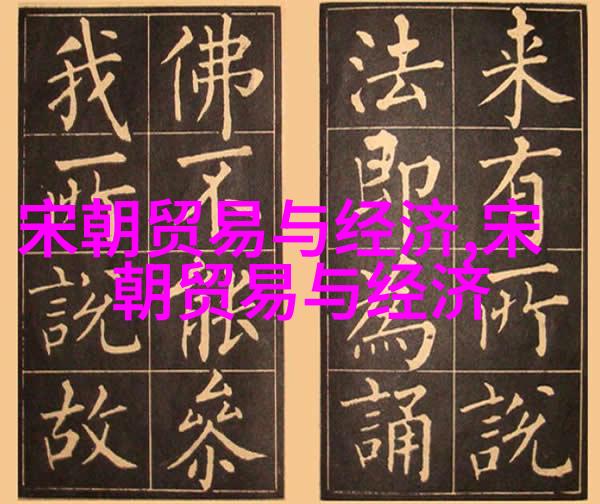 来有所說
法即為誦
佛不能參
我所說故
宋朝贸易与经济,宋
朝贸易与经济